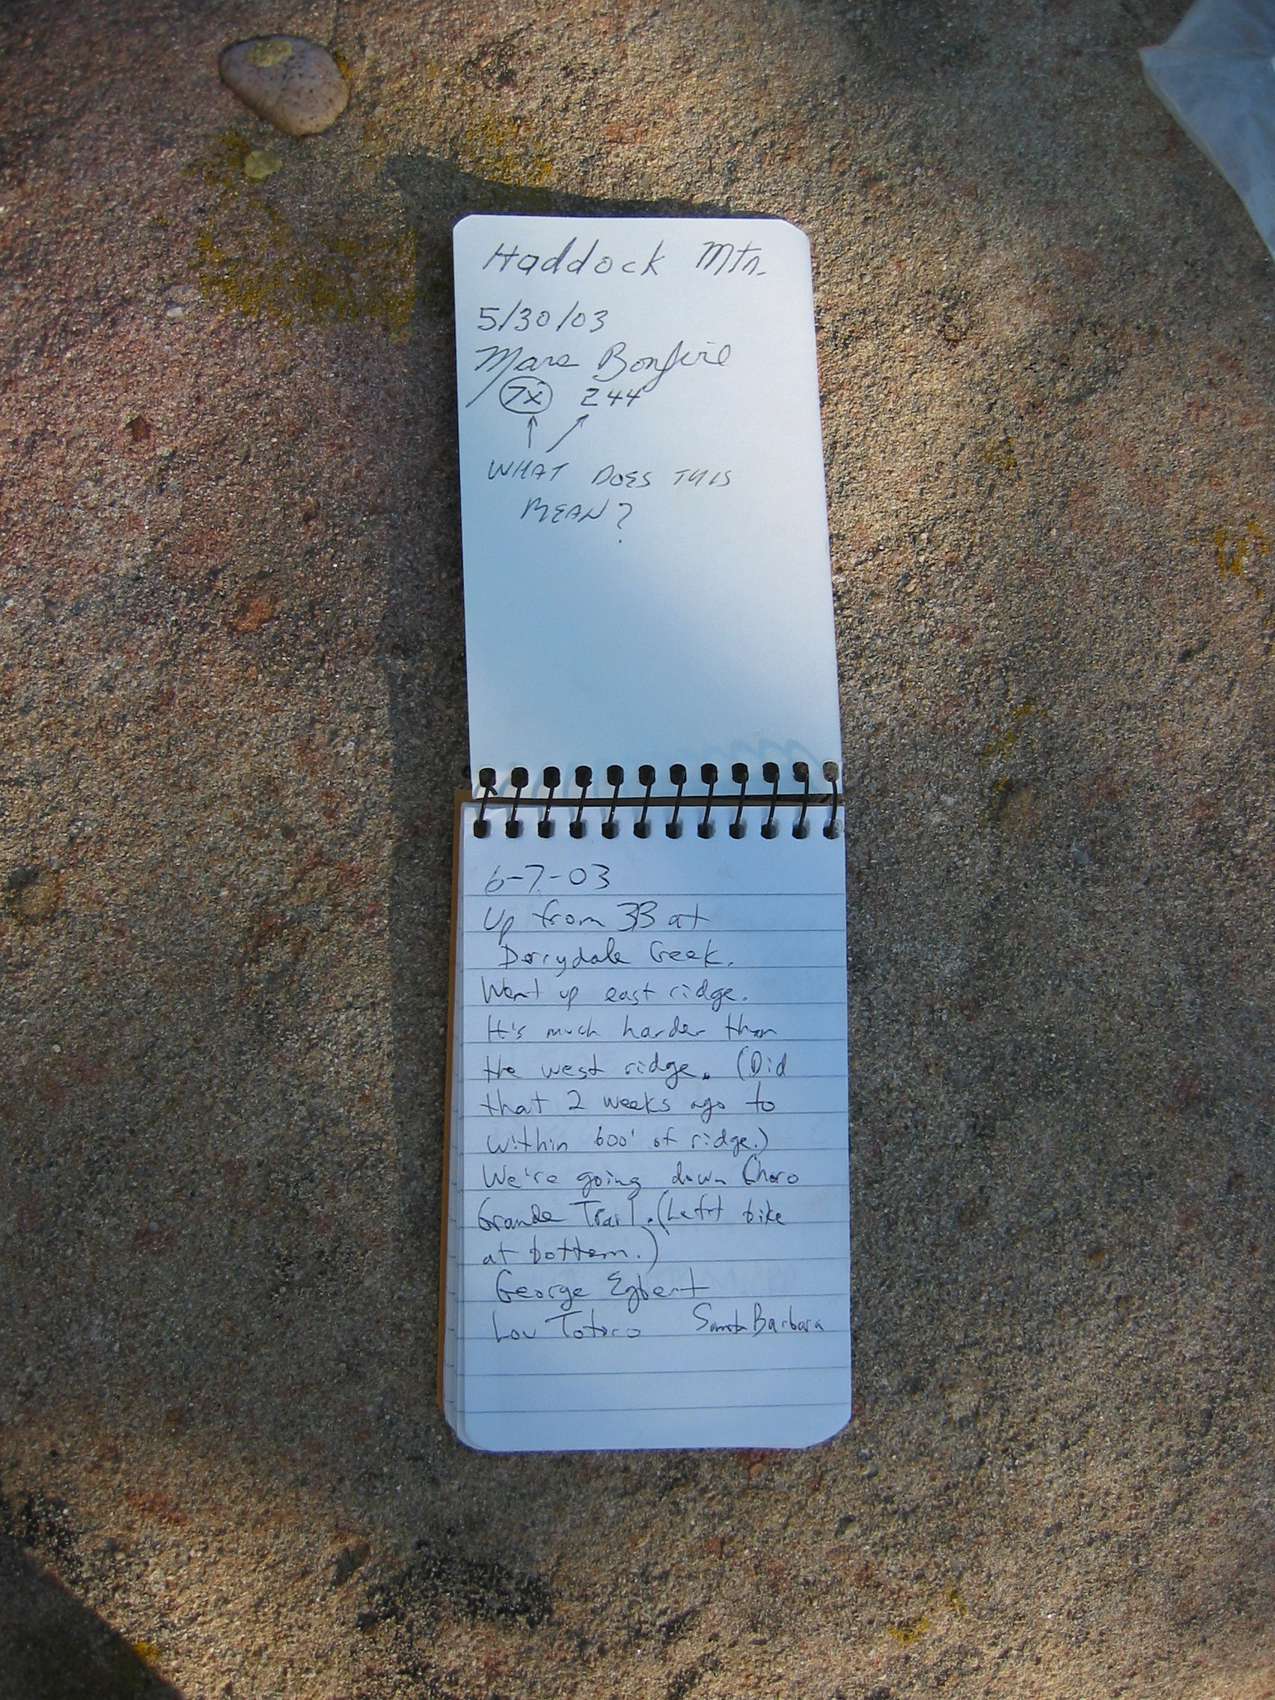 Haddock Mtn.
5/30/03
Mars Bonfire
7x 244
WHAT DOES THIS
MEAN?
6-7-03
Up from 33 at
Derrydale Creek.
Went up east ridge.
It's much harder than
the west ridge. (Did
that 2 weeks ago to
within 600' of ridge.)
We're going down Choro
Grande Trail. (Left bike
at bottom.)
George Egbert
Lou Totoro Santa Barbara